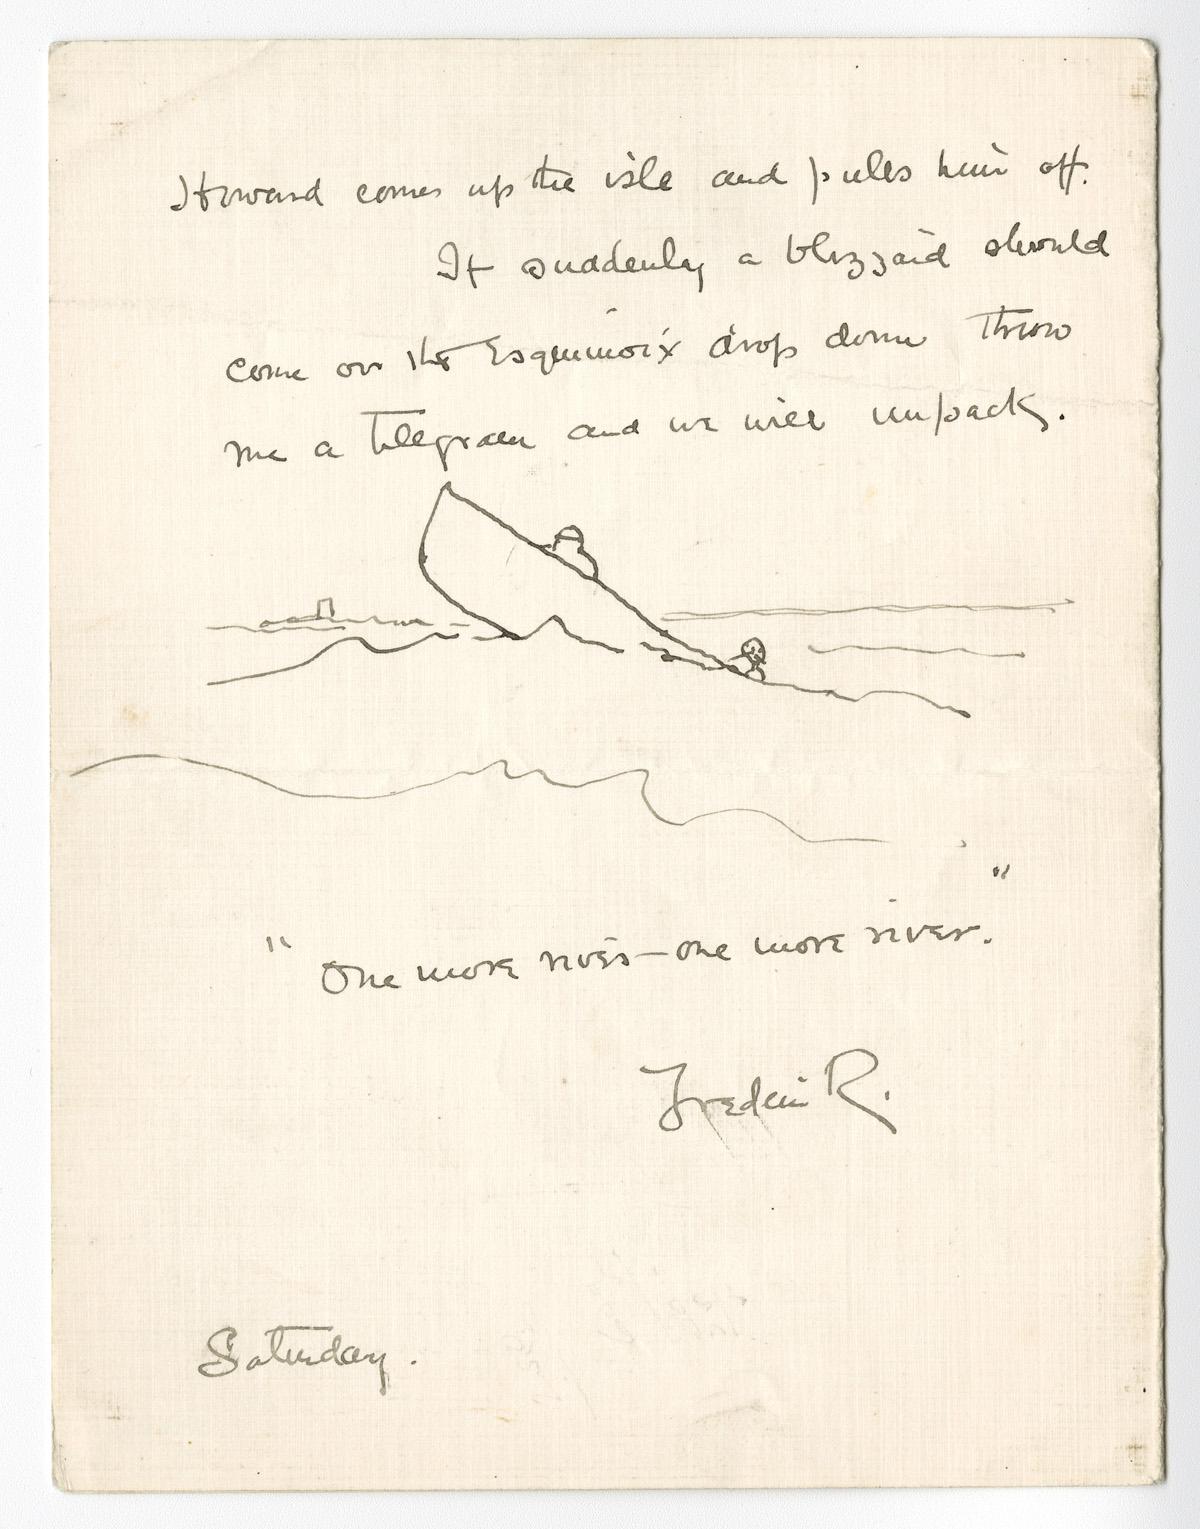 Howard comes up the isle and pules him off.
If suddenly a blizzard should
come on the Esquinoix drop down throw
me a telegram and we will unpack.
"One more river — one more river."
Frederic R.
Saturday.